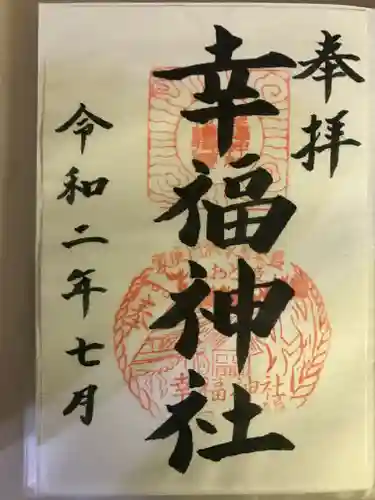 奉拝
幸福神社
令和二年七月
幸福神社